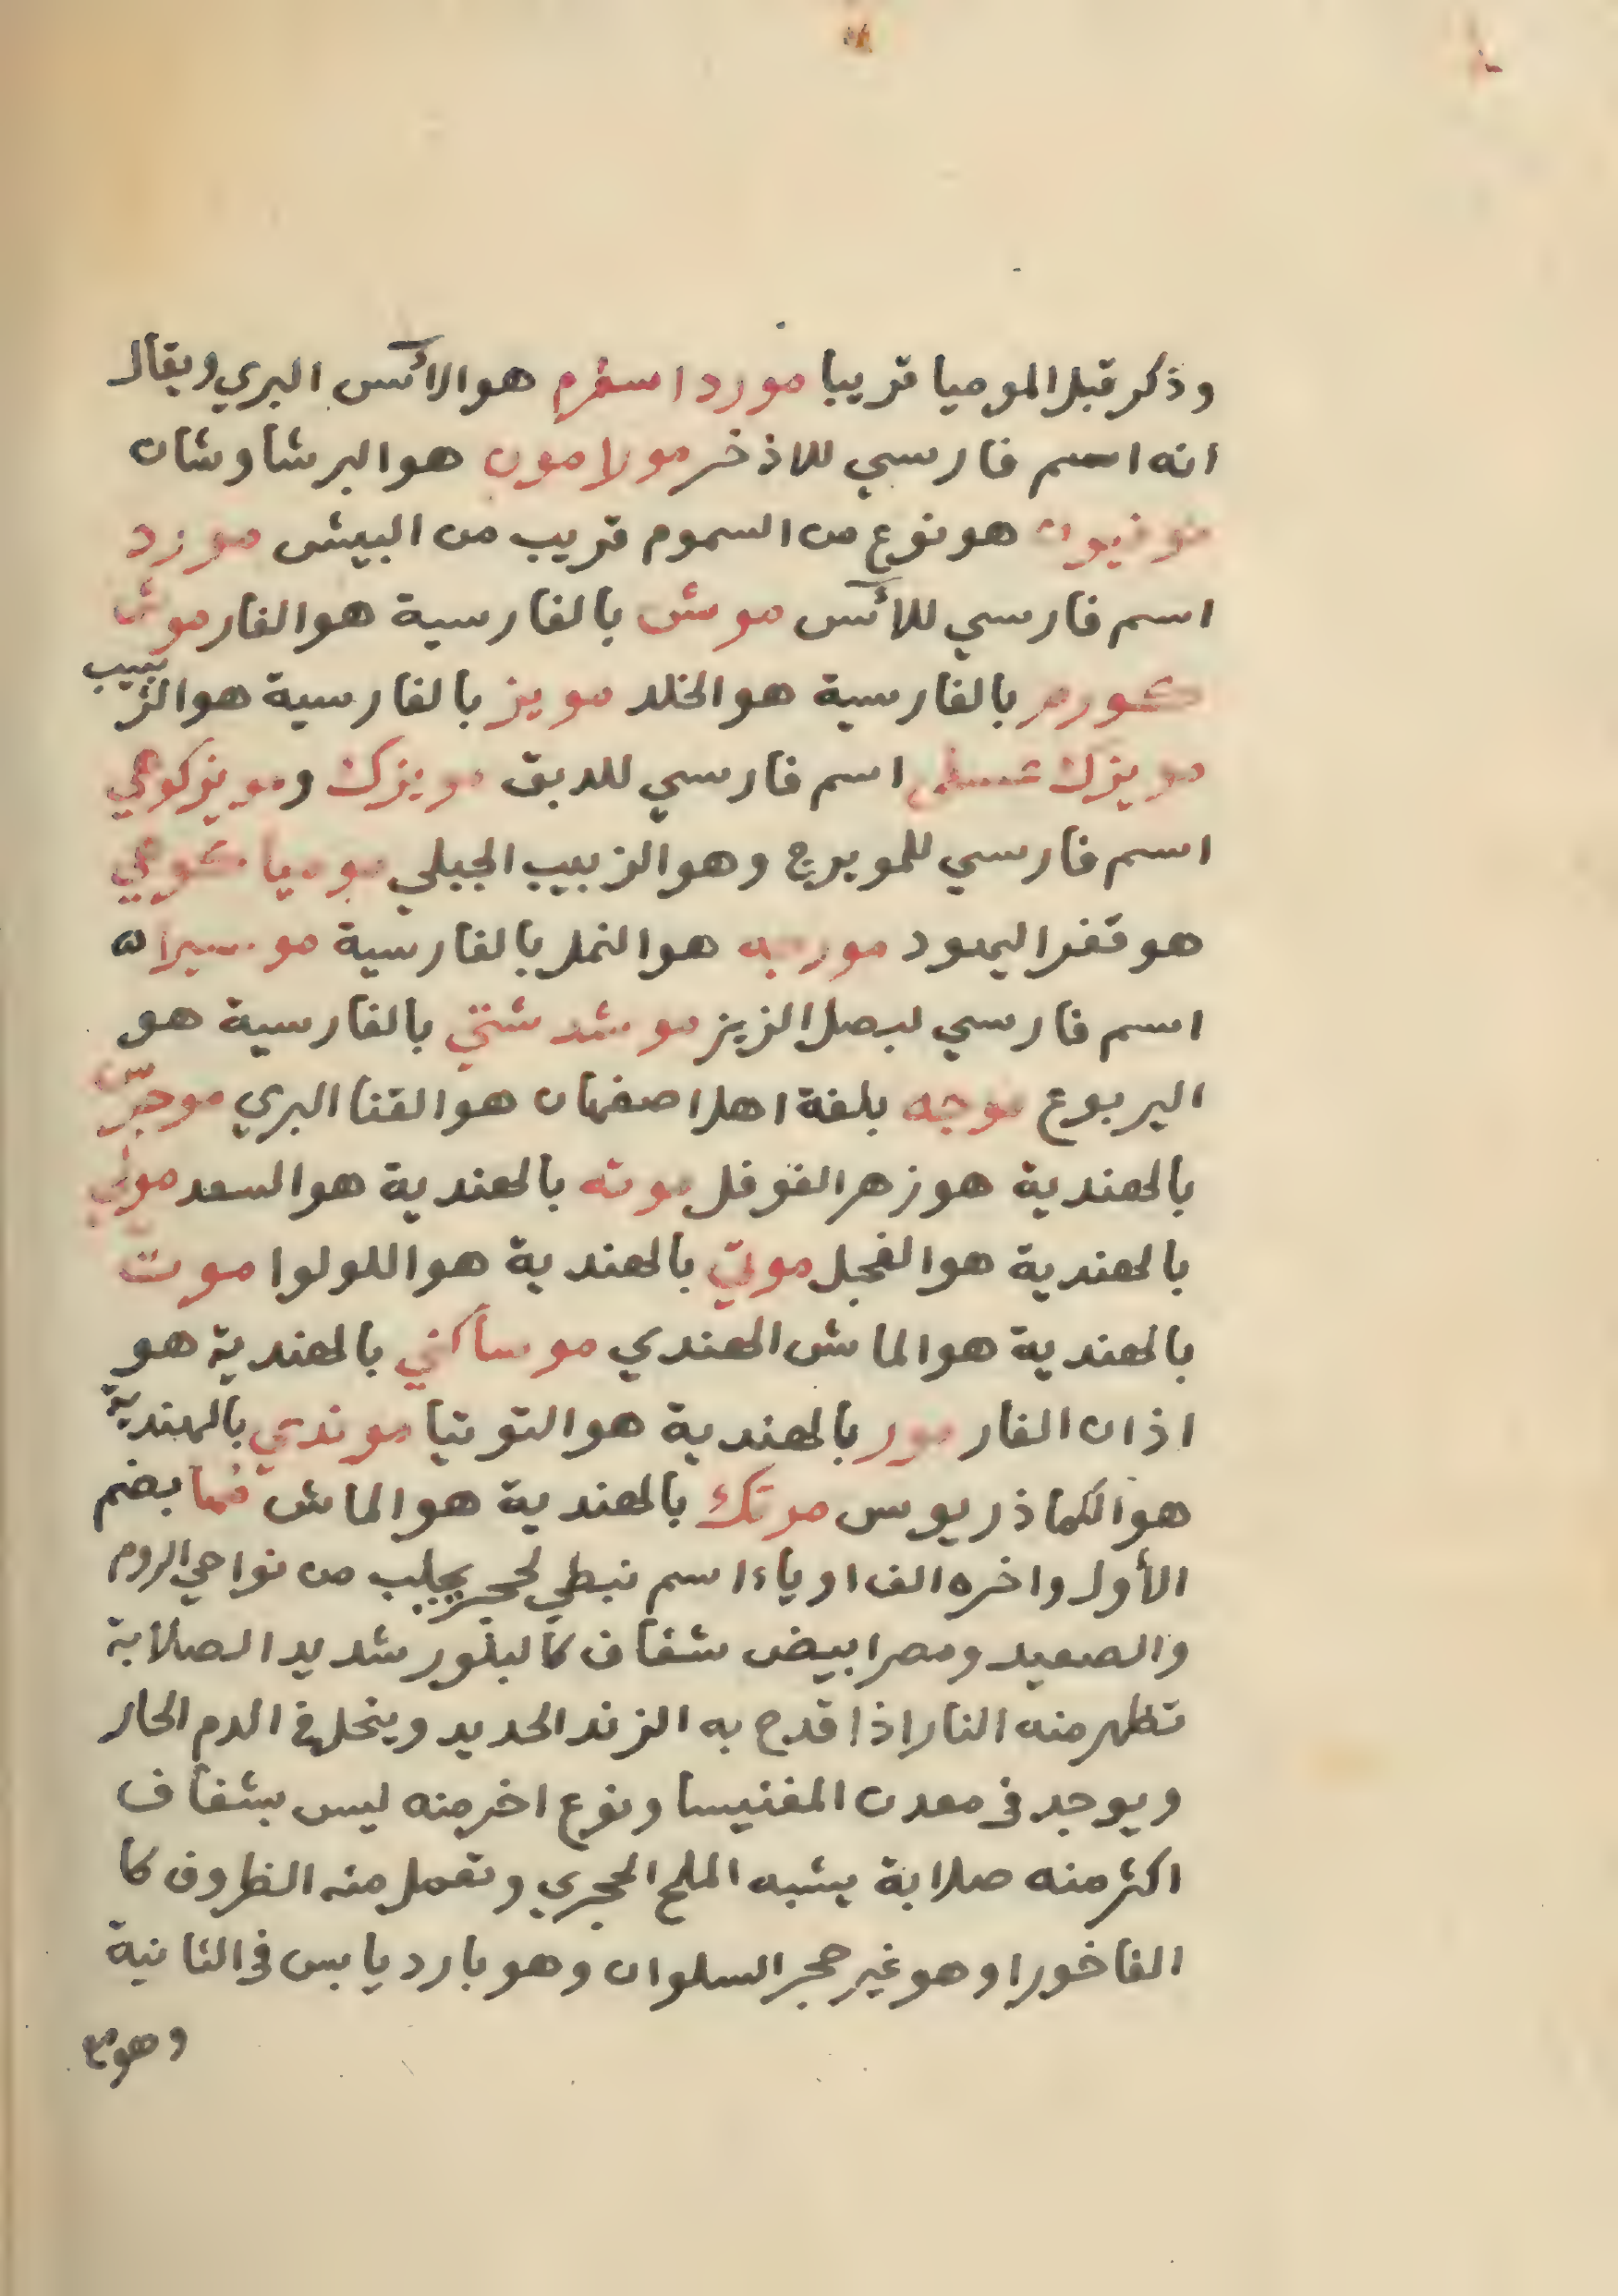 وذكر قبل الموميا قريبا مورد اسفرم هو الآس البري ويقال
انه اسم فارسي للاذخر مولامون هو البرشاوشان
هو نوع من السموم قريب من البيش مورد
اسم فارسي للآس موش بالفارسية هو الفار موش
كور بالفارسية هو الخلد مويز بالفارسية هو الزبيب
مويزك عسلي اسم فارسي للدبق مويزك ومويزكوهي
اسم فارسي للمويرج وهو الزبيب الجبلي موميا كوهي
هو قفر اليهود مورجه هو النمل بالفارسية موسيران
اسم فارسي لبصل الزيز دشتي بالفارسية هو
اليربوع موجه بلغة اهل اصفهان هو القثا البري
بالهندية هو زهر الفوفل موته بالهندية هو السعد مولي
بالهندية هو الفجل موتي بالهندية هو اللولوا موت
بالهندية هو الماش الهندي موساكني بالهندية هو
اذان الفار مور بالهندية هو التوتيا موندي بالهندية
هو الكماذريوس مرتك بالهندية هو الماش مها بضم
الأول واخره الف او ياء اسم نبطي لحجر يجلب من نواحي الروم
والصعيد ومصر ابيض شفاف كالبلور شديد الصلابة
تظهر منه النار اذا قدح به الزند الحديد وينحل في الدم الحار
ويوجد في معدن المغنيسا ونوع اخر منه ليس بشفاف
اكثر منه صلابة يشبه الملح الحجري وتعمل منه الظروف كا
الفاخورا وهو غير حجر السلوان وهو بارد يابس في الثانية
وهو